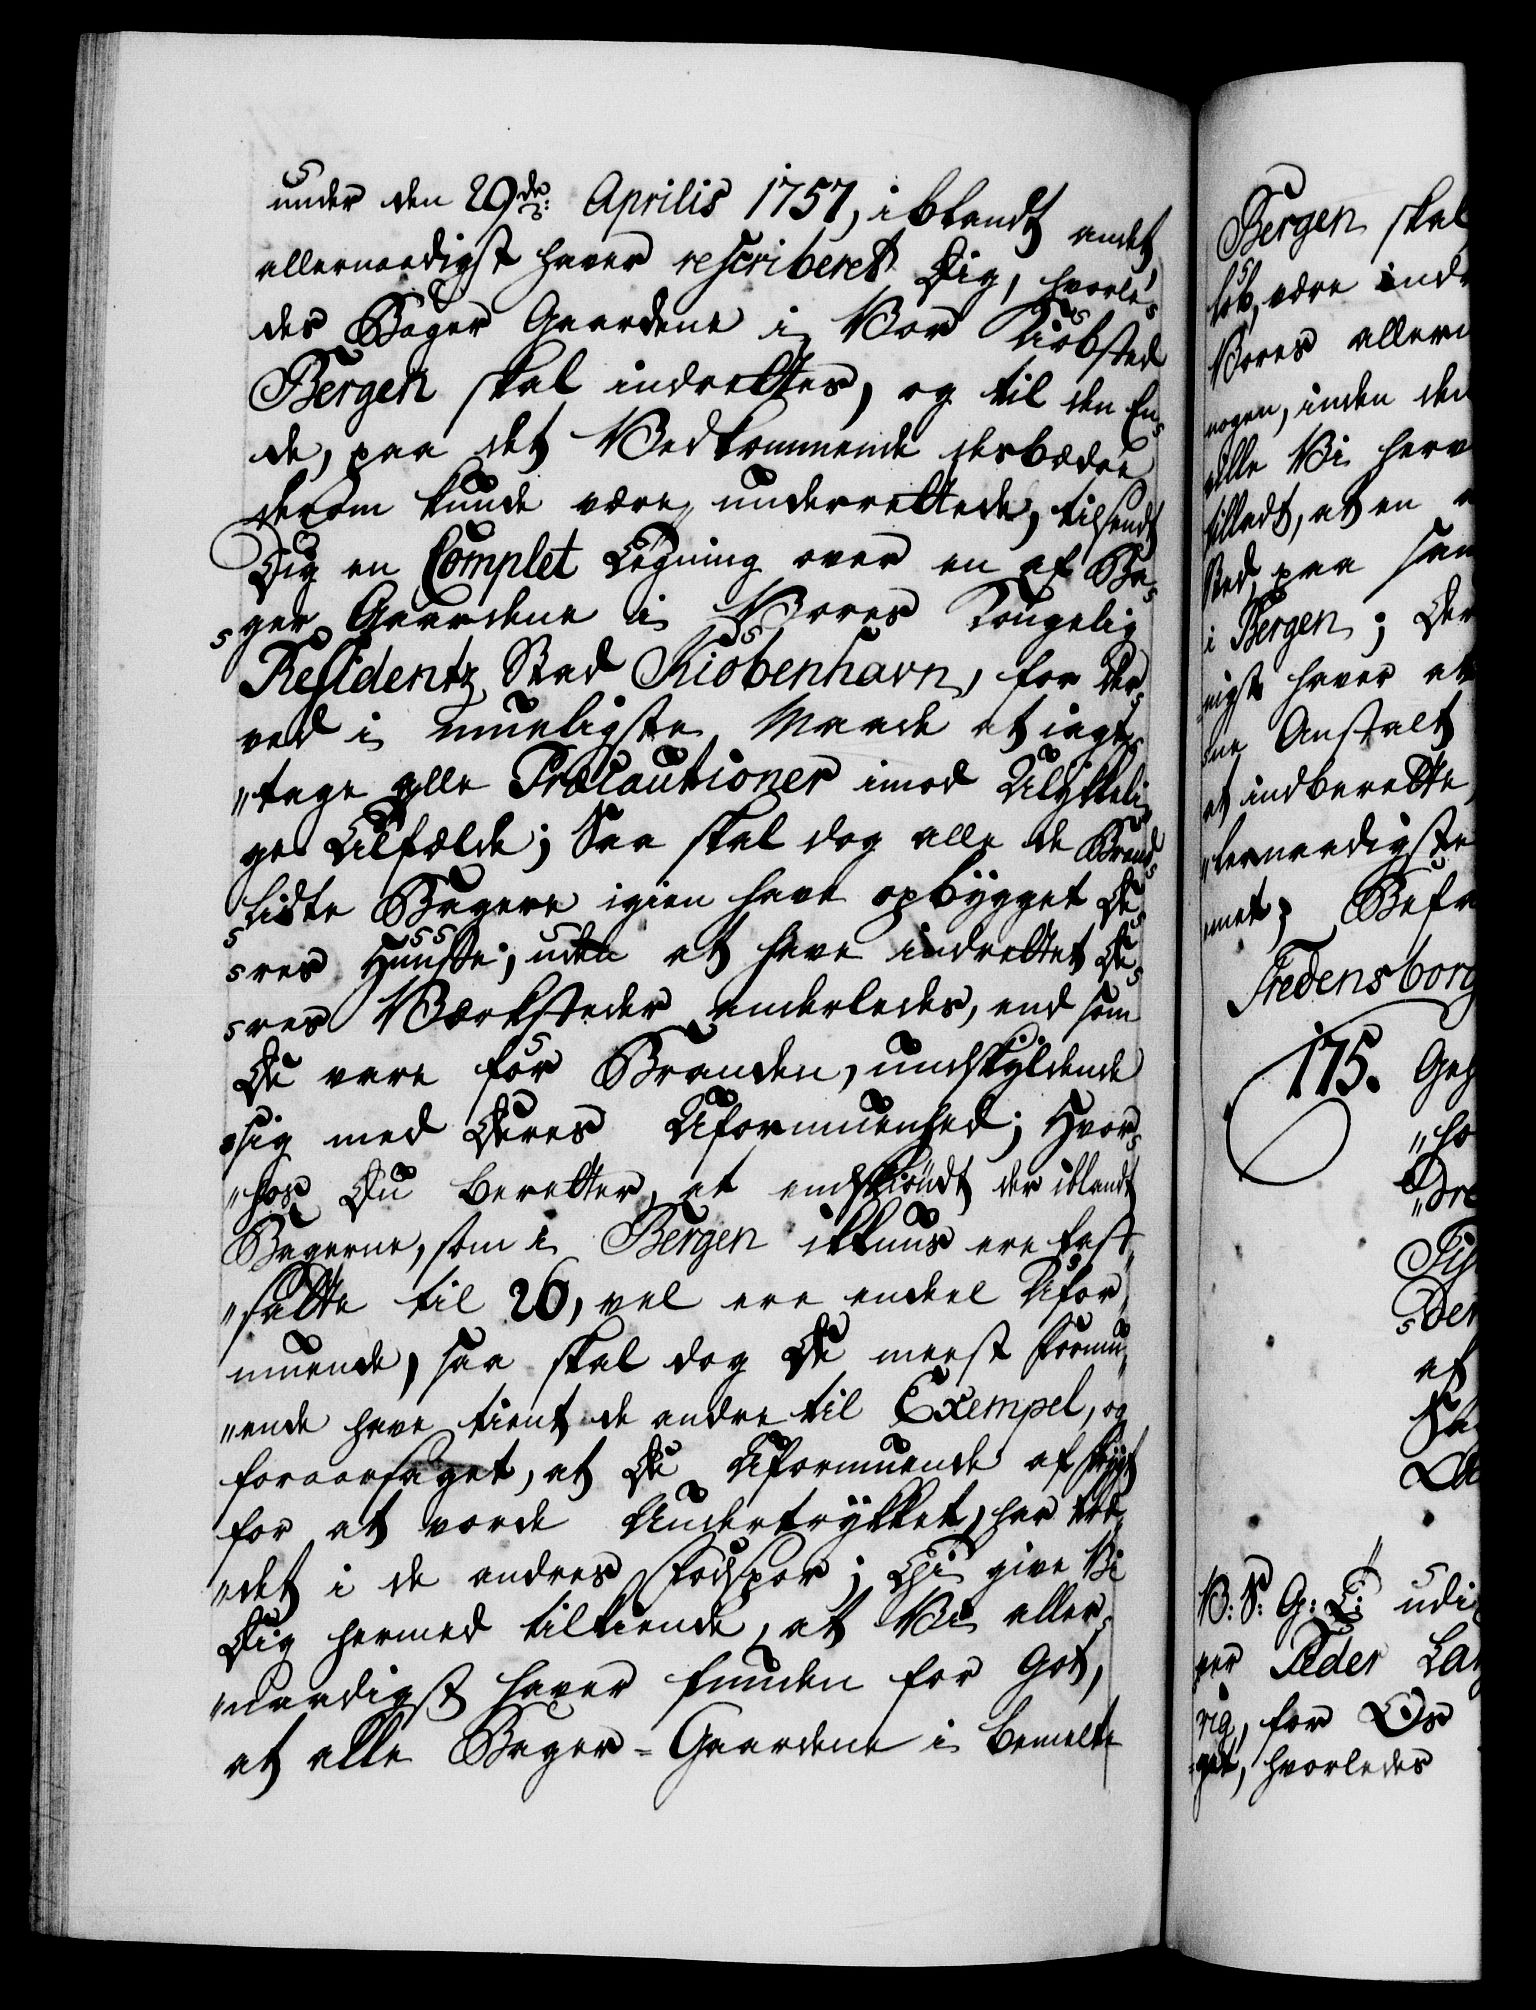 under den 29de: Aprilis 1757, iblandt andet
allernaadigst haver rescriberet Dig, hvorle-
des Bager Gaardene i Vor Kiøbsted
Bergen skal indrettes, og til den En-
de, paa det Vedkommende desbædre
derom kunde være underrettede, tilsendt
Dig en Complet Tegning over en af Ba-
-ger Gaardene i Vores Kongelig
Residentz Stad Kiøbenhavn, for der-
ved i mueligste Maade at iagt-
"tage alle Præcautioner imod Ulykkeli-
ge Tilfælde; Saa skal dog alle de Brand-
lidte Bagere igien have opbygget De-
-res Huuse, uden at have indrettet De-
-res Værksteder anderledes, end som
De vare før Branden, undskyldende
sig med Deres Uformuenhed; Hvor-
"hos Du beretter, at endskiøndt der iblandt
Bagerne, som i Bergen ikkuns ere fast-
"satte til 26, vel ere endeel Ufor-
muende, saa skal dog De meest formu-
"ende have tient de andre til Exempel, og
foraarsaget, at De Uformuende af frygt
for at vorde Undertrykket, har traa-
"det i de andres Fodspor; Thi give Vi
Dig hermed tilkiende, at Vi aller-
"naadigst haver funden for Got,
at alle Bager-Gaardene i bemelte
Bergen skal
løb, være ind
Vores aller
nogen, inden den
alle Vi herv
tilladt, at en
Sted, paa
i Bergen; Der
-nigst haver at
-ne Anstalt
at indberette
"lernaadigste
-met; Befa
Fredensborg
175. Geh
"ho
Der
af
V: S: G: T: udi
Peder Lar
ria, for Os
-get, hvorledes